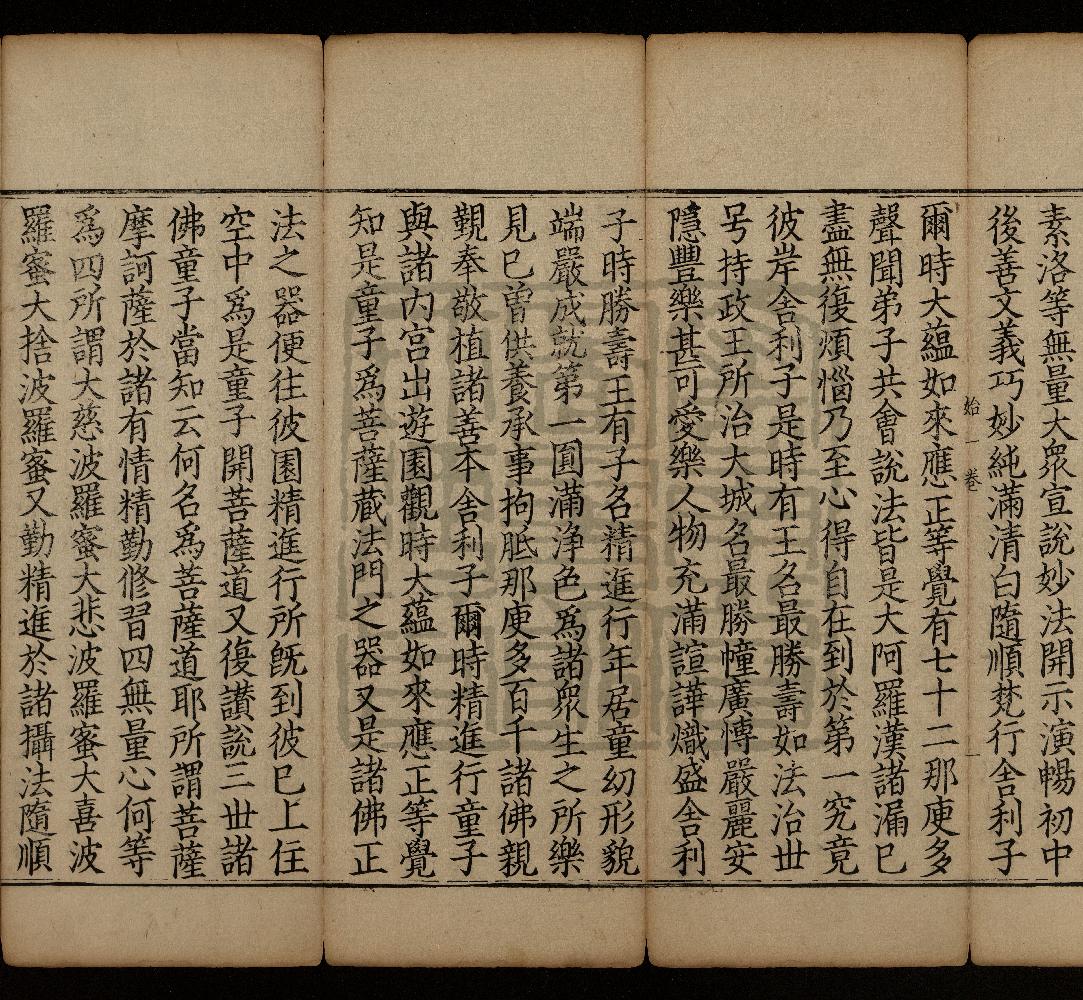 素洛等無量大眾宣說妙法開示演暢初中
後善文義巧妙純滿清白隨順梵行舍利子
始一卷 一
爾時大蘊如來應正等覺有七十二那庾多
聲聞弟子共會說法皆是大阿羅漢諸漏已
盡無復煩惱乃至心得自在到於第一究竟
彼岸舍利子是時有王名最勝壽如法治世
号持政王所治大城名最勝幢廣愽嚴麗安
隱豐樂甚可愛樂人物充滿諠譁熾盛舍利
子時勝壽王有子名精進行年居童幼形貌
端嚴成就第一圓滿淨色為諸眾生之所樂
見已曾供養承事拘胝那庾多百千諸佛親
覲奉敬植諸善本舍利子爾時精進行童子
與諸内宫出遊園觀時大蘊如來應正等覺
知是童子為菩薩藏法門之器又是諸佛正
法之器便往彼園精進行所既到彼已上住
空中為是童子開菩薩道又復讚說三世諸
佛童子當知云何名為菩薩道耶所謂菩薩
摩訶薩於諸有情精勤修習四無量心何等
為四所謂大慈波羅蜜大悲波羅蜜大喜波
羅蜜大捨波羅蜜又勤精進於諸攝法隨順